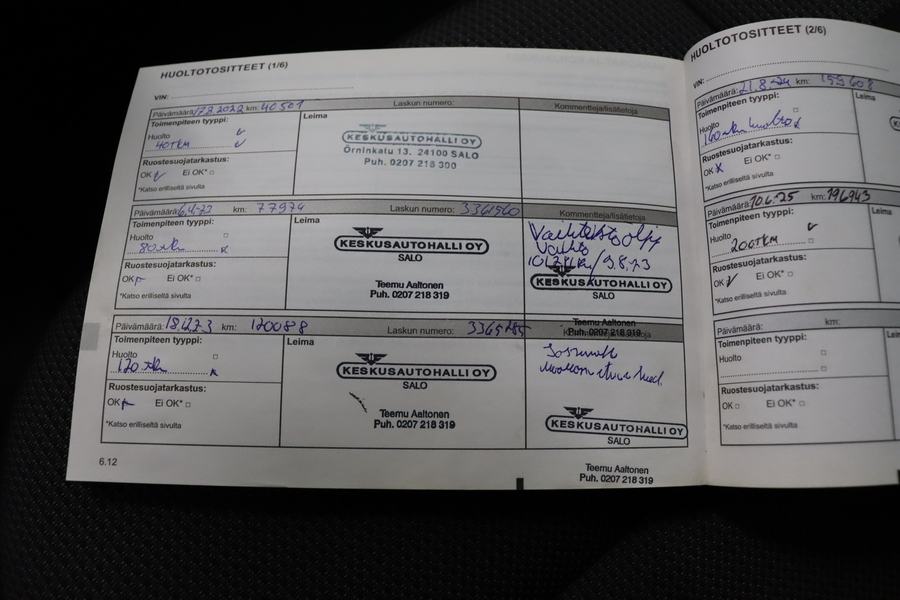 HUOLTOTOSITTEET (1/6)
VIN:
Päivämäärä: 17.8.2022 km: 40501 Laskun numero: Kommentteja/lisätietoja
Toimenpiteen tyyppi:
Huolto
40TKM
Ruostesuojatarkastus:
OK Ei OK*
*Katso erilliseltä sivulta
Leima
KESKUSAUTOHALLI OY
Örninkatu 13, 24100 SALO
Puh. 0207 218 300
Päivämäärä: km: 77974 Laskun numero: 3361560 Kommentteja/lisätietoja
Toimenpiteen tyyppi:
Huolto
80 tkm
Ruostesuojatarkastus:
OK Ei OK*
*Katso erilliseltä sivulta
Leima
KESKUSAUTOHALLI OY
SALO
Teemu Aaltonen
Puh. 0207 218 319
Vaihteistoöljy
Vaihto
9.8.23
KESKUSAUTOHALLI OY
SALO
Teemu Aaltonen
Puh. 0207 218 319
Päivämäärä: km: 120088 Laskun numero: 3365285
Toimenpiteen tyyppi:
Huolto
120 tkm
Ruostesuojatarkastus:
OK Ei OK*
*Katso erilliseltä sivulta
Leima
KESKUSAUTOHALLI OY
SALO
Teemu Aaltonen
Puh. 0207 218 319
KESKUSAUTOHALLI OY
SALO
Teemu Aaltonen
Puh. 0207 218 319
6.12
HUOLTOTOSITTEET (2/6)
VIN:
Päivämäärä: 21.8.24 km: 159608
Toimenpiteen tyyppi:
Huolto
160 tkm huolto
Ruostesuojatarkastus:
OK Ei OK*
*Katso erilliseltä sivulta
Leima
Päivämäärä: 10.6.25 km: 196943
Toimenpiteen tyyppi:
Huolto
200TKM
Ruostesuojatarkastus:
OK Ei OK*
*Katso erilliseltä sivulta
Leima
Päivämäärä: km:
Toimenpiteen tyyppi:
Huolto
Ruostesuojatarkastus:
OK Ei OK*
*Katso erilliseltä sivulta
Leima